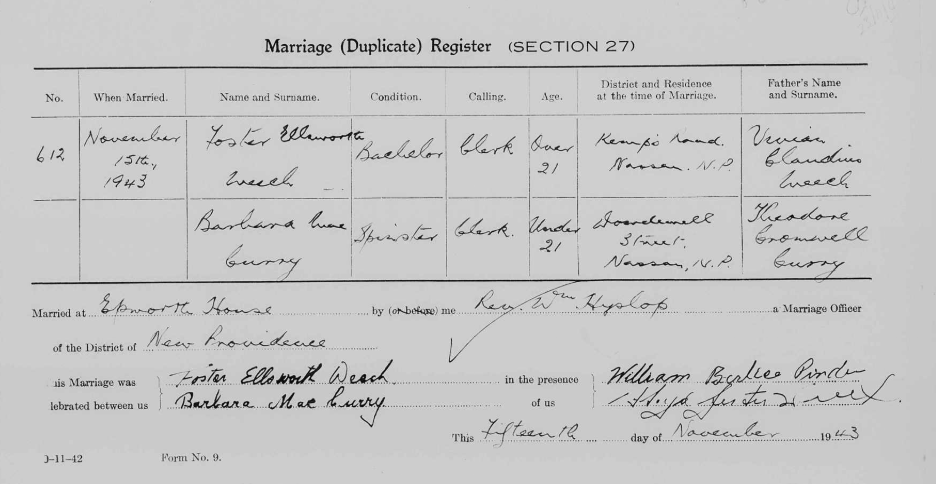 Marriage (Duplicate) Register (SECTION 27)
No. When Married. Name and Surname. Condition. Calling. Age. District and Residence at the time of Marriage. Father's Name and Surname.
612 November 15th, 1943 Foster Ellsworth Weech Bachelor Clerk Over 21 Kemp's road. Nassau, N.P. Vivian Claudius Weech
Barbara Mae Curry Spinster Clerk. Under 21 Street, Nassau, N.P. Theodore Cromwell Curry
Married at Epworth House by (or before) me Rev. Wm Hyslop a Marriage Officer
of the District of New Providence
his Marriage was Foster Ellsworth Weech in the presence William Pinder
lebrated between us Barbara Mae Curry of us
This Fifteenth day of November 1943
)-11-42 Form No. 9.